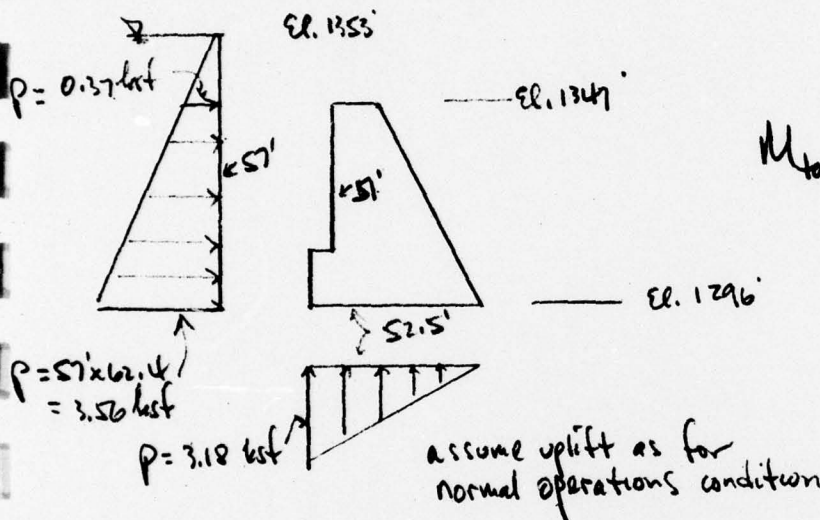 El. 1353'
p = 0.37 ksf
El. 1347'
57'
51'
El. 1296'
52.5'
p = 57' x 62.4
= 3.56 ksf
p = 3.18 ksf
assume uplift as for
normal operations condition